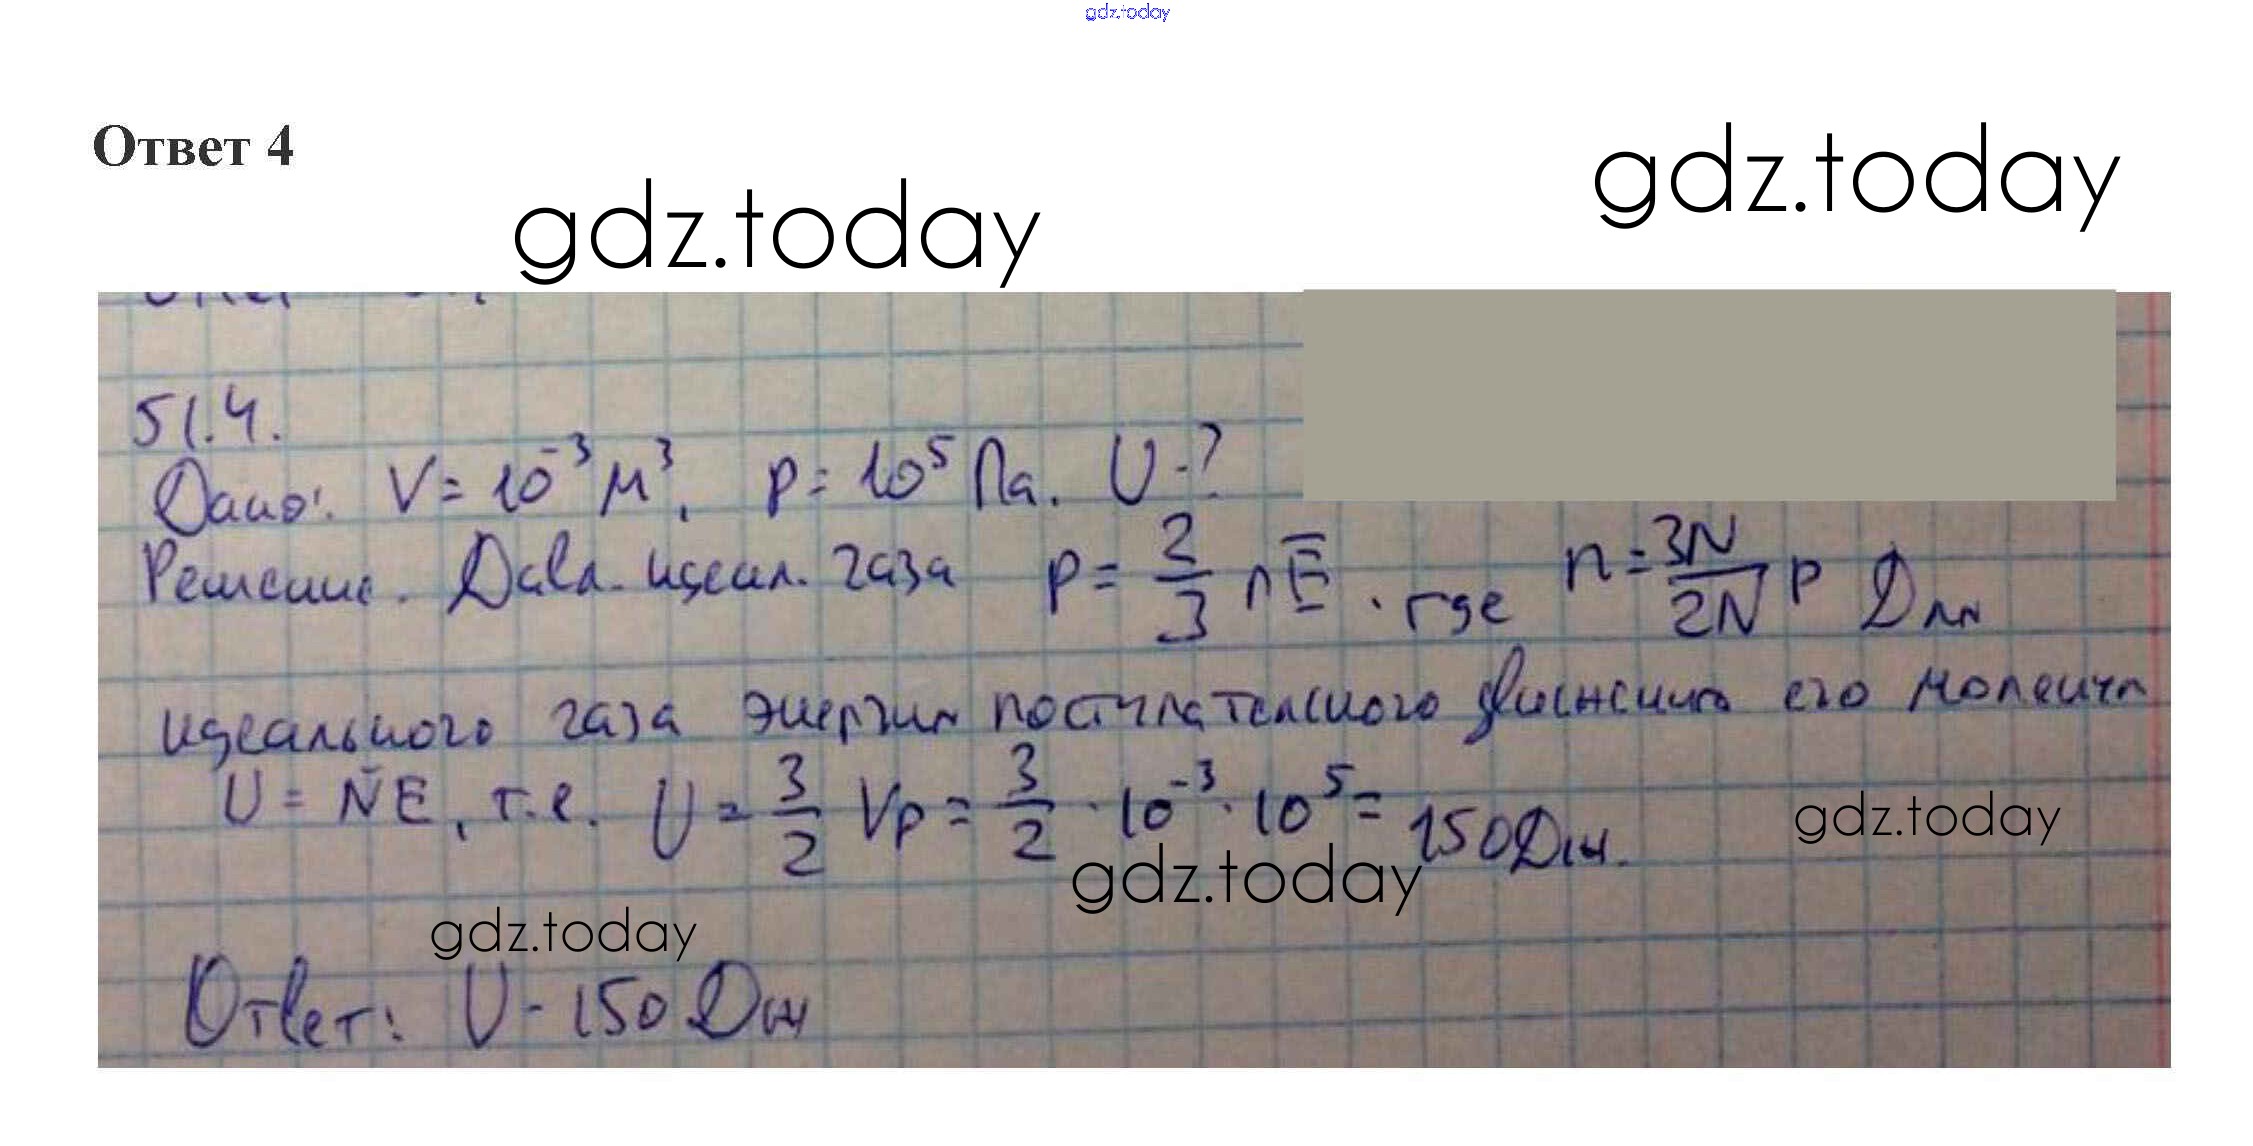 gdz.today
Ответ 4
gdz.today
gdz.today
51.4.
Дано: V = 10⁻³ м³, p = 10⁵ Па. U - ?
Решение. Давл. идеал. газа p = 2/3 nE̅. где n = 3N/2N p Для
идеального газа энергия поступательного движения его молекул
U = N̄E, т.е. U = 3/2 Vp = 3/2 · 10⁻³ · 10⁵ = 150 Дж.
gdz.today
gdz.today
gdz.today
Ответ: U - 150 Дж